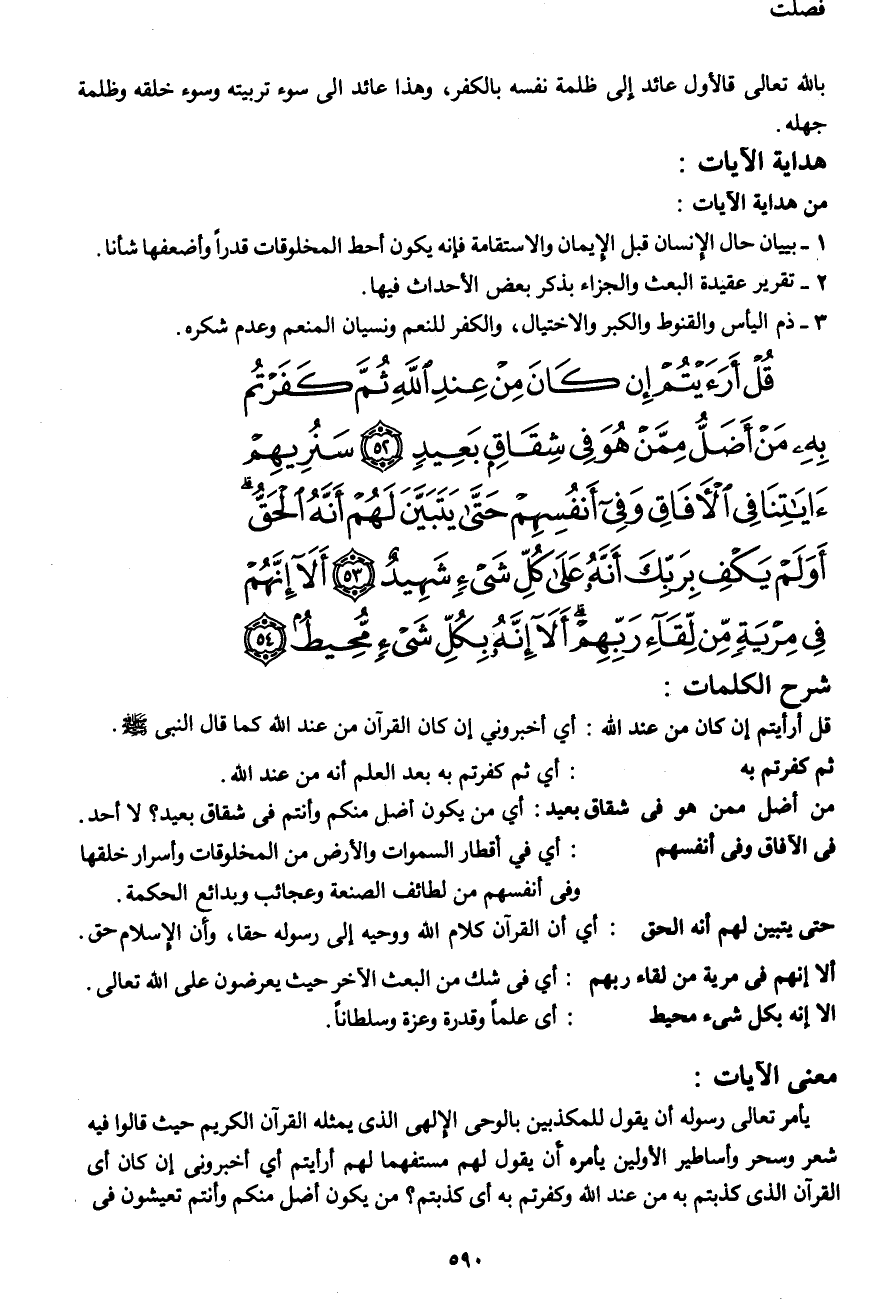 فصلت
بالله تعالى قالأول عائد إلى ظلمة نفسه بالكفر، وهذا عائد الى سوء تربيته وسوء خلقه وظلمة
جهله .
هداية الآيات :
من هداية الآيات :
١ ـ بييان حال الإنسان قبل الإيمان والاستقامة فإنه يكون أحط المخلوقات قدراً وأضعفها شأنا .
٢ ـ تقرير عقيدة البعث والجزاء بذكر بعض الأحداث فيها .
٣ ـ ذم اليأس والقنوط والكبر والاختيال، والكفر للنعم ونسيان المنعم وعدم شكره .
قُلْ أَرَءَيْتُمْ إِن كَانَ مِنْ عِندِ ٱللَّهِ ثُمَّ كَفَرْتُم
بِهِۦ مَنْ أَضَلُّ مِمَّنْ هُوَ فِى شِقَاقٍۭ بَعِيدٍ ٥٢ سَنُرِيهِمْ
ءَايَٰتِنَا فِى ٱلْأَفَاقِ وَفِىٓ أَنفُسِهِمْ حَتَّىٰ يَتَبَيَّنَ لَهُمْ أَنَّهُ ٱلْحَقُّ ۗ
أَوَلَمْ يَكْفِ بِرَبِّكَ أَنَّهُۥ عَلَىٰ كُلِّ شَىْءٍ شَهِيدٌ ٥٣ أَلَآ إِنَّهُمْ
فِى مِرْيَةٍ مِّن لِّقَآءِ رَبِّهِمْ ۗ أَلَآ إِنَّهُۥ بِكُلِّ شَىْءٍ مُّحِيطٌۢ ٥٤
شرح الكلمات :
قل أرأيتم إن كان من عند الله : أي أخبروني إن كان القرآن من عند الله كما قال النبى ﷺ .
ثم كفرتم به : أي ثم كفرتم به بعد العلم أنه من عند الله .
من أضل ممن هو فى شقاق بعيد : أي من يكون أضل منكم وأنتم فى شقاق بعيد؟ لا أحد .
فى الآفاق وفى أنفسهم : أي في أقطار السموات والأرض من المخلوقات وأسرار خلقها
وفى أنفسهم من لطائف الصنعة وعجائب وبدائع الحكمة .
حتى يتبين لهم أنه الحق : أي أن القرآن كلام الله ووحيه إلى رسوله حقا، وأن الإسلام حق .
ألا إنهم فى مرية من لقاء ربهم : أي فى شك من البعث الآخر حيث يعرضون على الله تعالى .
الا إنه بكل شىء محيط : أى علماً وقدرة وعزة وسلطاناً .
معنى الآيات :
يأمر تعالى رسوله أن يقول للمكذبين بالوحى الإلهى الذى يمثله القرآن الكريم حيث قالوا فيه
شعر وسحر وأساطير الأولين يأمره أن يقول لهم مستفهما لهم أرأيتم أي أخبرونى إن كان أى
القرآن الذى كذبتم به من عند الله وكفرتم به أى كذبتم؟ من يكون أضل منكم وأنتم تعيشون فى
٥٩٠